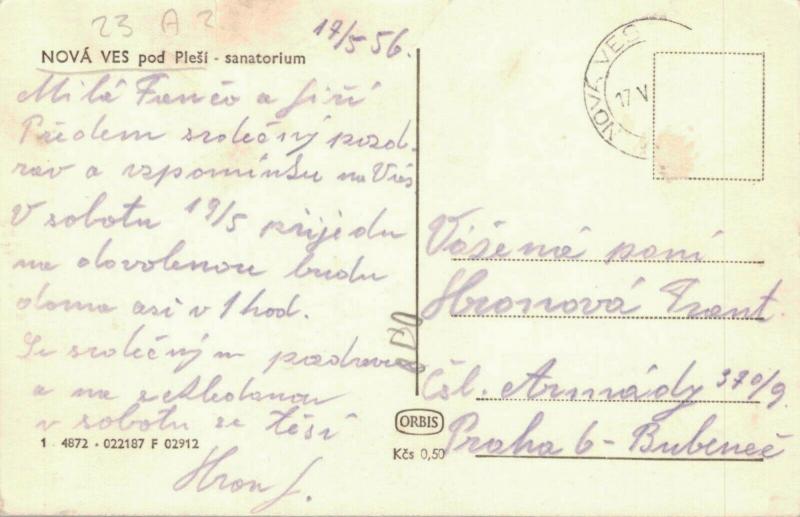 23 A 2
17/5 56.
NOVÁ VES pod Pleší - sanatorium
Milá Fančo a Jiří
Předem srdečný pozd-
rav a vzpomínku na Vás
V sobotu 19/5 přijedu
na dovolenou budu
doma asi v 1 hod.
Se srdečným pozdravem
a na shledanou
v sobotu se těší
Hron J.
1 4872 - 022187 F 02912
NOVÁ VES
17 V
Vážená paní
Hronová Frant.
Čsl. Armády 370/9.
Praha 6 - Bubeneč
ORBIS
Kčs 0,50